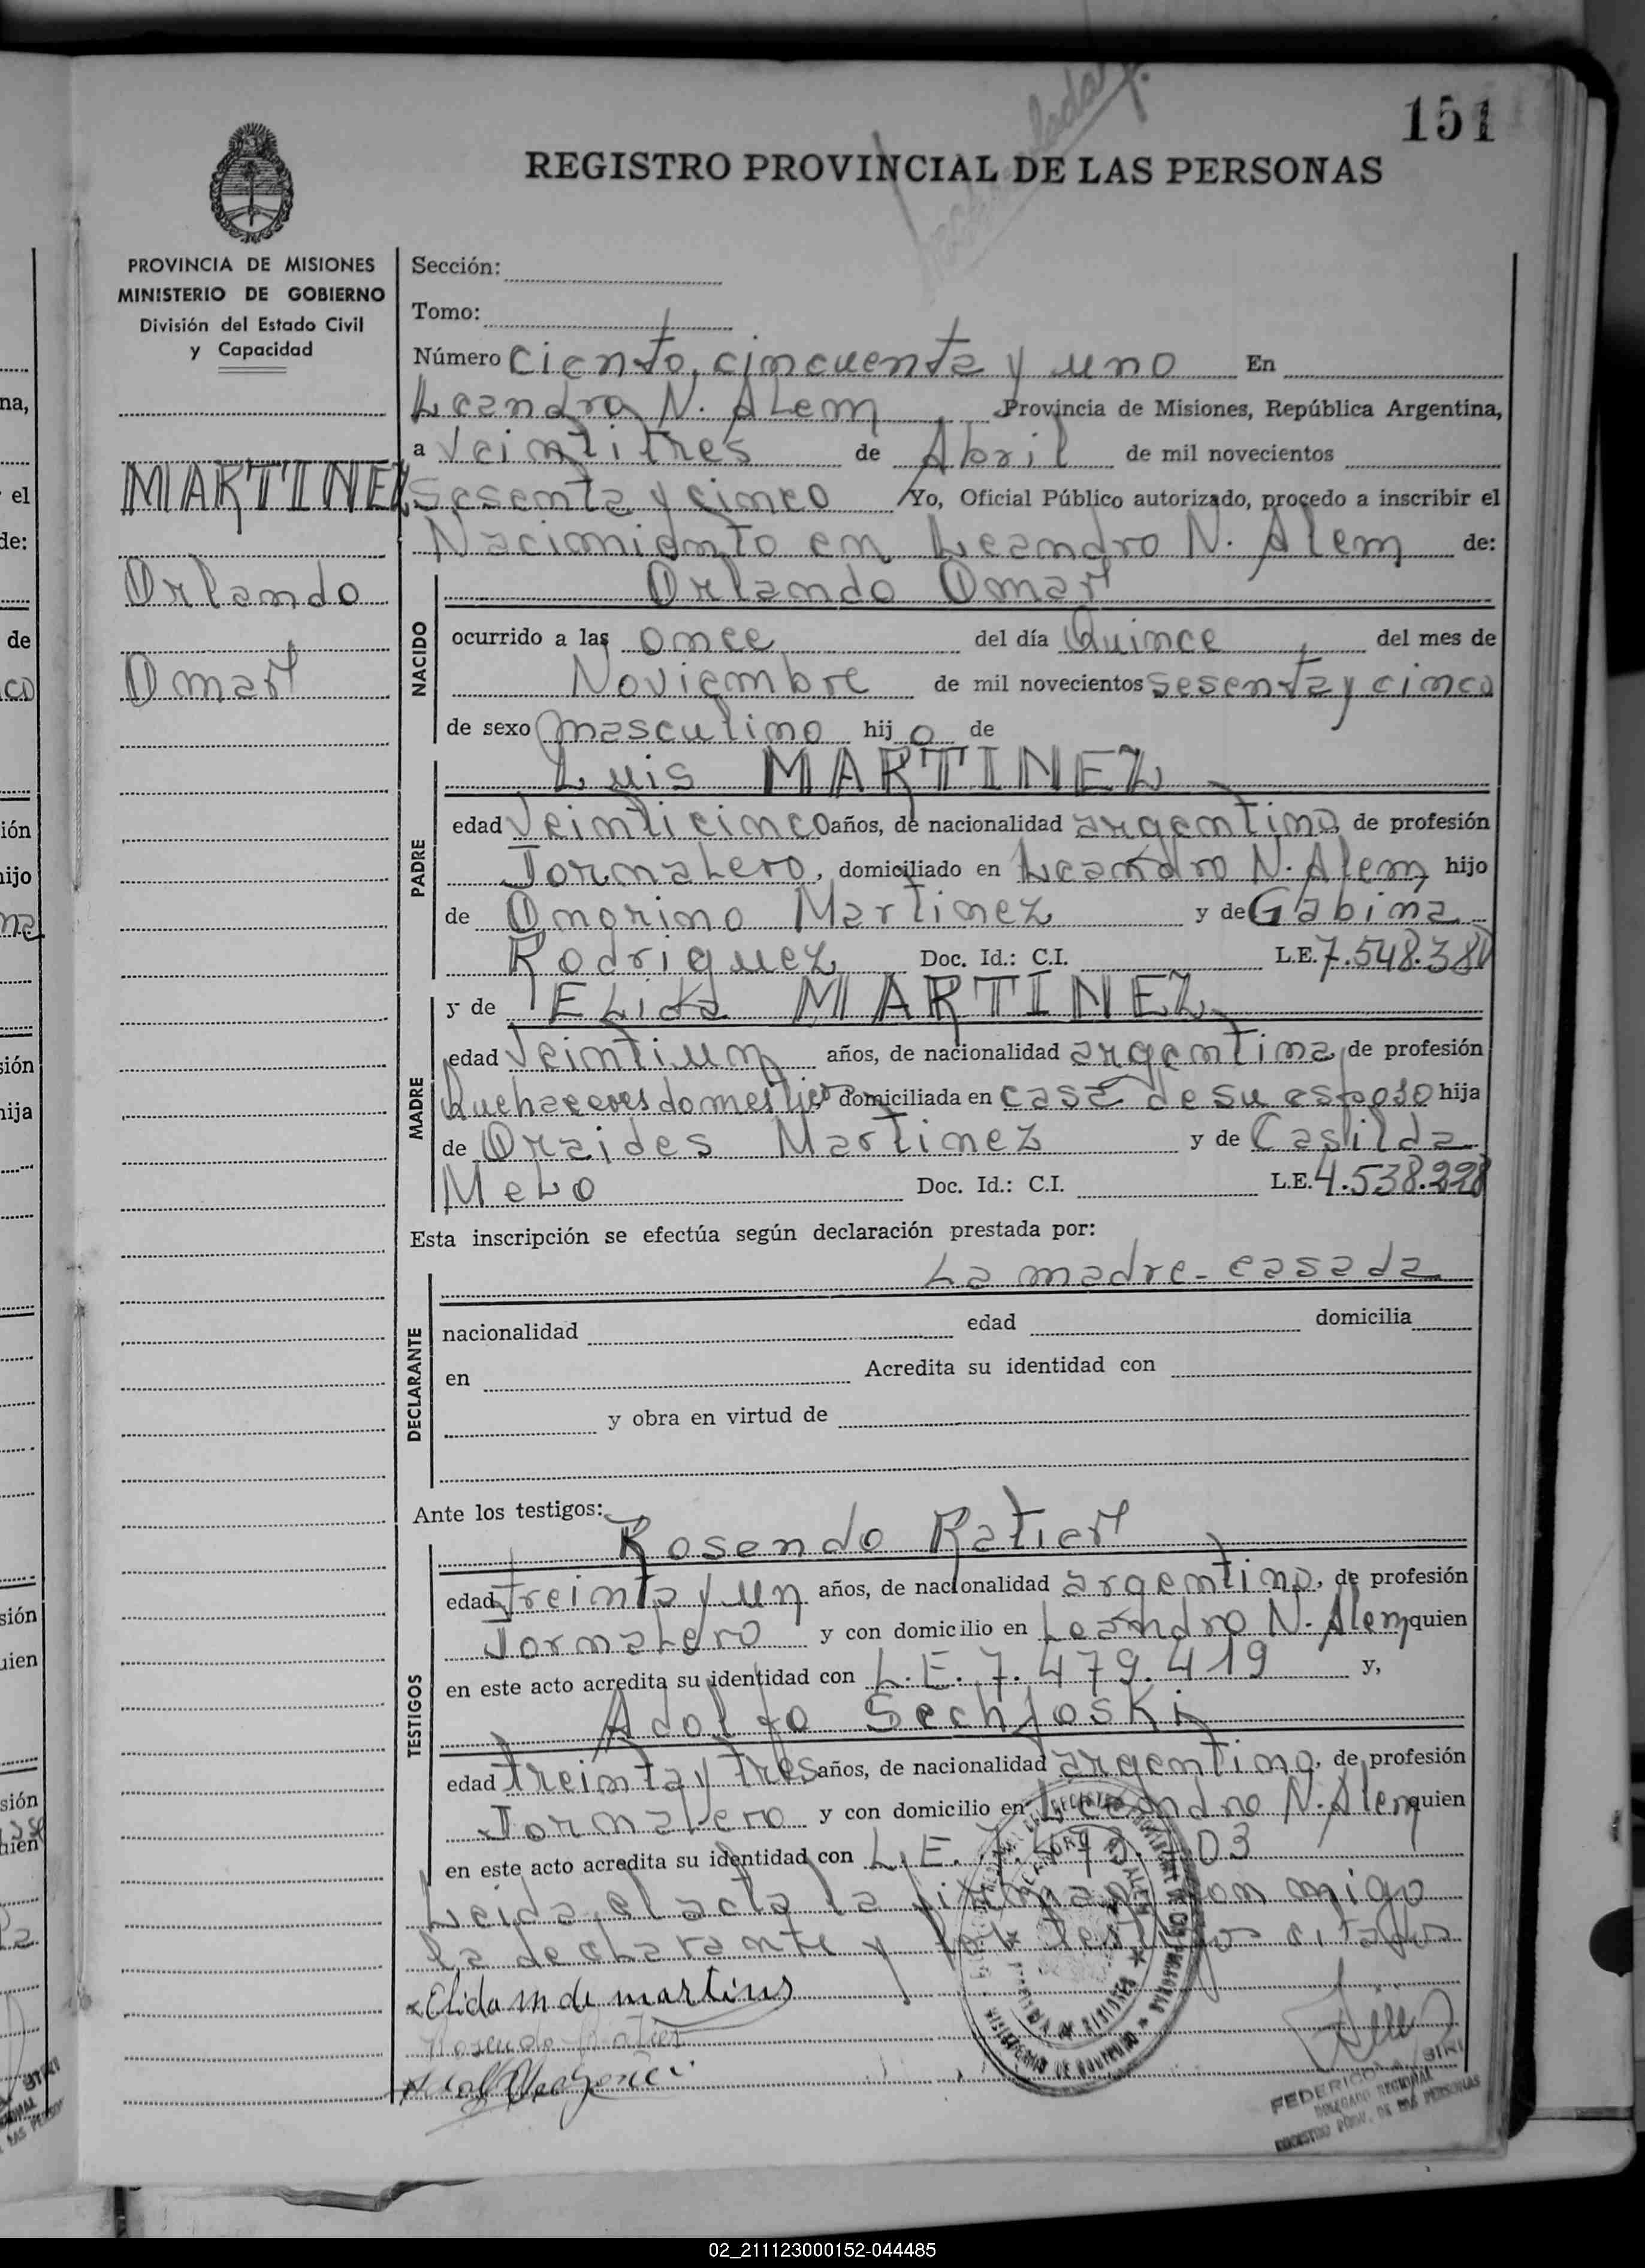 151
REGISTRO PROVINCIAL DE LAS PERSONAS
PROVINCIA DE MISIONES
MINISTERIO DE GOBIERNO
División del Estado Civil
y Capacidad
MARTINEZ
Orlando
Omar
Sección:
Tomo:
Número ciento cincuenta y uno En
Leandro N. Alem Provincia de Misiones, República Argentina,
a Veintitres de Abril de mil novecientos
sesenta y cinco Yo, Oficial Público autorizado, procedo a inscribir el
Nacimiento en Leandro N. Alem de:
Orlando Omar
NACIDO
ocurrido a las once del día Quince del mes de
Noviembre de mil novecientos sesenta y cinco
de sexo masculino hijo de
Luis MARTINEZ
PADRE
edad Veinticinco años, de nacionalidad argentino, de profesión
Jornalero, domiciliado en Leandro N. Alem hijo
de Onorino Martinez y de Gabina
Rodriguez Doc. Id.: C.I. L.E. 7.548.38
y de Elida MARTINEZ
MADRE
edad Veintiun años, de nacionalidad argentina, de profesión
Quehaceres domestico domiciliada en casa de su esposo hija
de Oraides Martinez y de Casilda
Melo Doc. Id.: C.I. L.E. 4.538.228
Esta inscripción se efectúa según declaración prestada por:
La madre - casada
DECLARANTE
nacionalidad edad domicilia
en Acredita su identidad con
y obra en virtud de
Ante los testigos:
Rosendo Ratier
TESTIGOS
edad treinta y un años, de nacionalidad argentino, de profesión
Jornalero y con domicilio en Leandro N. Alem quien
en este acto acredita su identidad con L.E. 7.479.419 y,
Adolfo Sechjoski
edad treinta y tres años, de nacionalidad argentino, de profesión
Jornalero y con domicilio en Leandro N. Alem quien
en este acto acredita su identidad con L.E. 03
Leida el acta la firman con migo
la declarante y los testigos citados
Elida m de martins
Rosendo Ratier
FEDERICO
DELEGADO REGIONAL
REGISTRO PROV. DE LAS PERSONAS
02_211123000152-044485